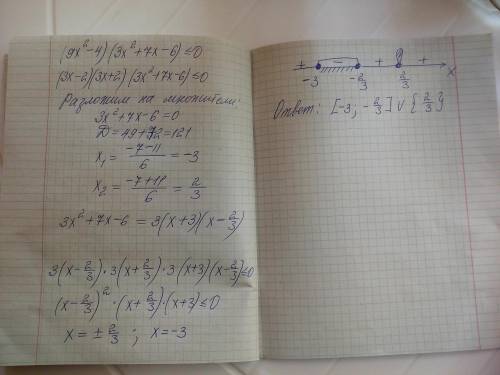 (9x²-4)(3x²+7x-6)≤0
(3x-2)(3x+2)(3x²+7x-6)≤0
Разложим на множители:
3x²+7x-6=0
D=49+72=121
x₁= (-7-11)/6 =-3
x₂= (-7+11)/6 = 2/3
3x²+7x-6=3(x+3)(x-2/3)
3(x-2/3)·3(x+2/3)·3(x+3)(x-2/3)≤0
(x-2/3)²·(x+2/3)·(x+3)≤0
x=±2/3 ; x=-3
+ - + +
-3 -2/3 2/3 x
Ответ: [-3; -2/3]∪{2/3}